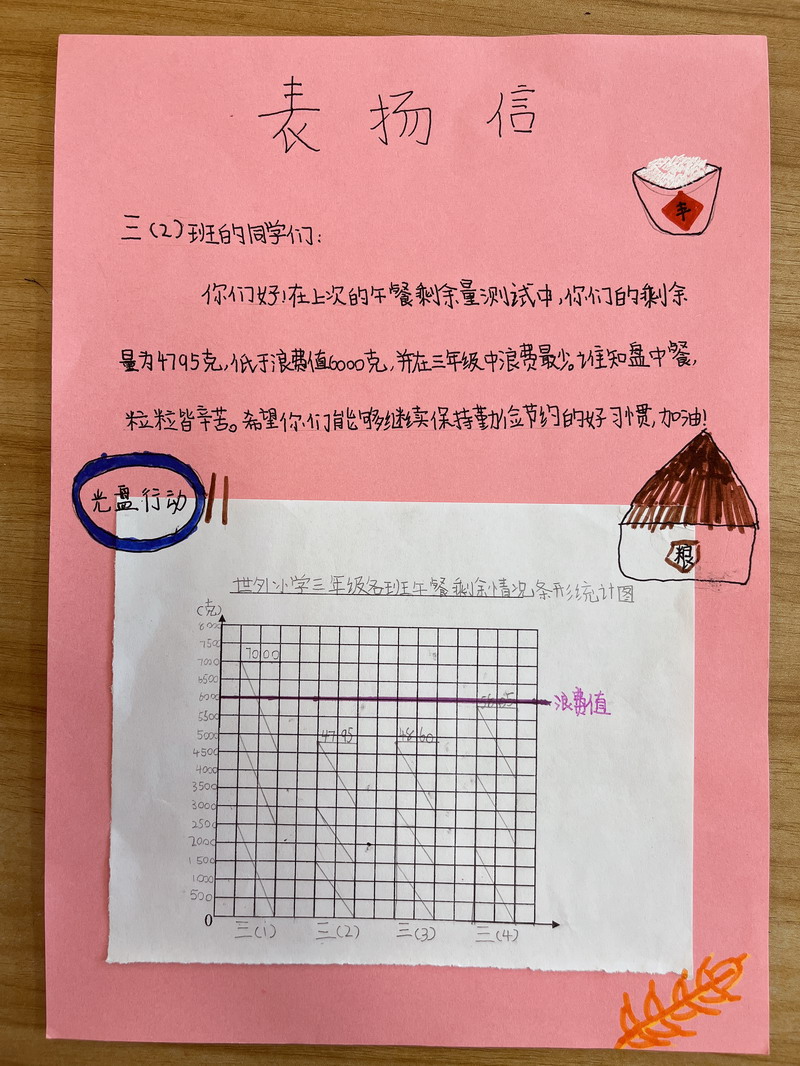 表扬信
丰
三(2)班的同学们:
你们好!在上次的午餐剩余量测试中,你们的剩余
量为4795克,低于浪费值6000克,并在三年级中浪费最少。谁知盘中餐,
粒粒皆辛苦。希望你们能够继续保持勤俭节约的好习惯,加油!
光盘行动
粮
世外小学三年级各班午餐剩余情况条形统计图
(克)
8000
7500
7000
6500
6000
5500
5000
4500
4000
3500
3000
2500
2000
1500
1000
500
0
7000
4795
4860
浪费值
三(1) 三(2) 三(3) 三(4)